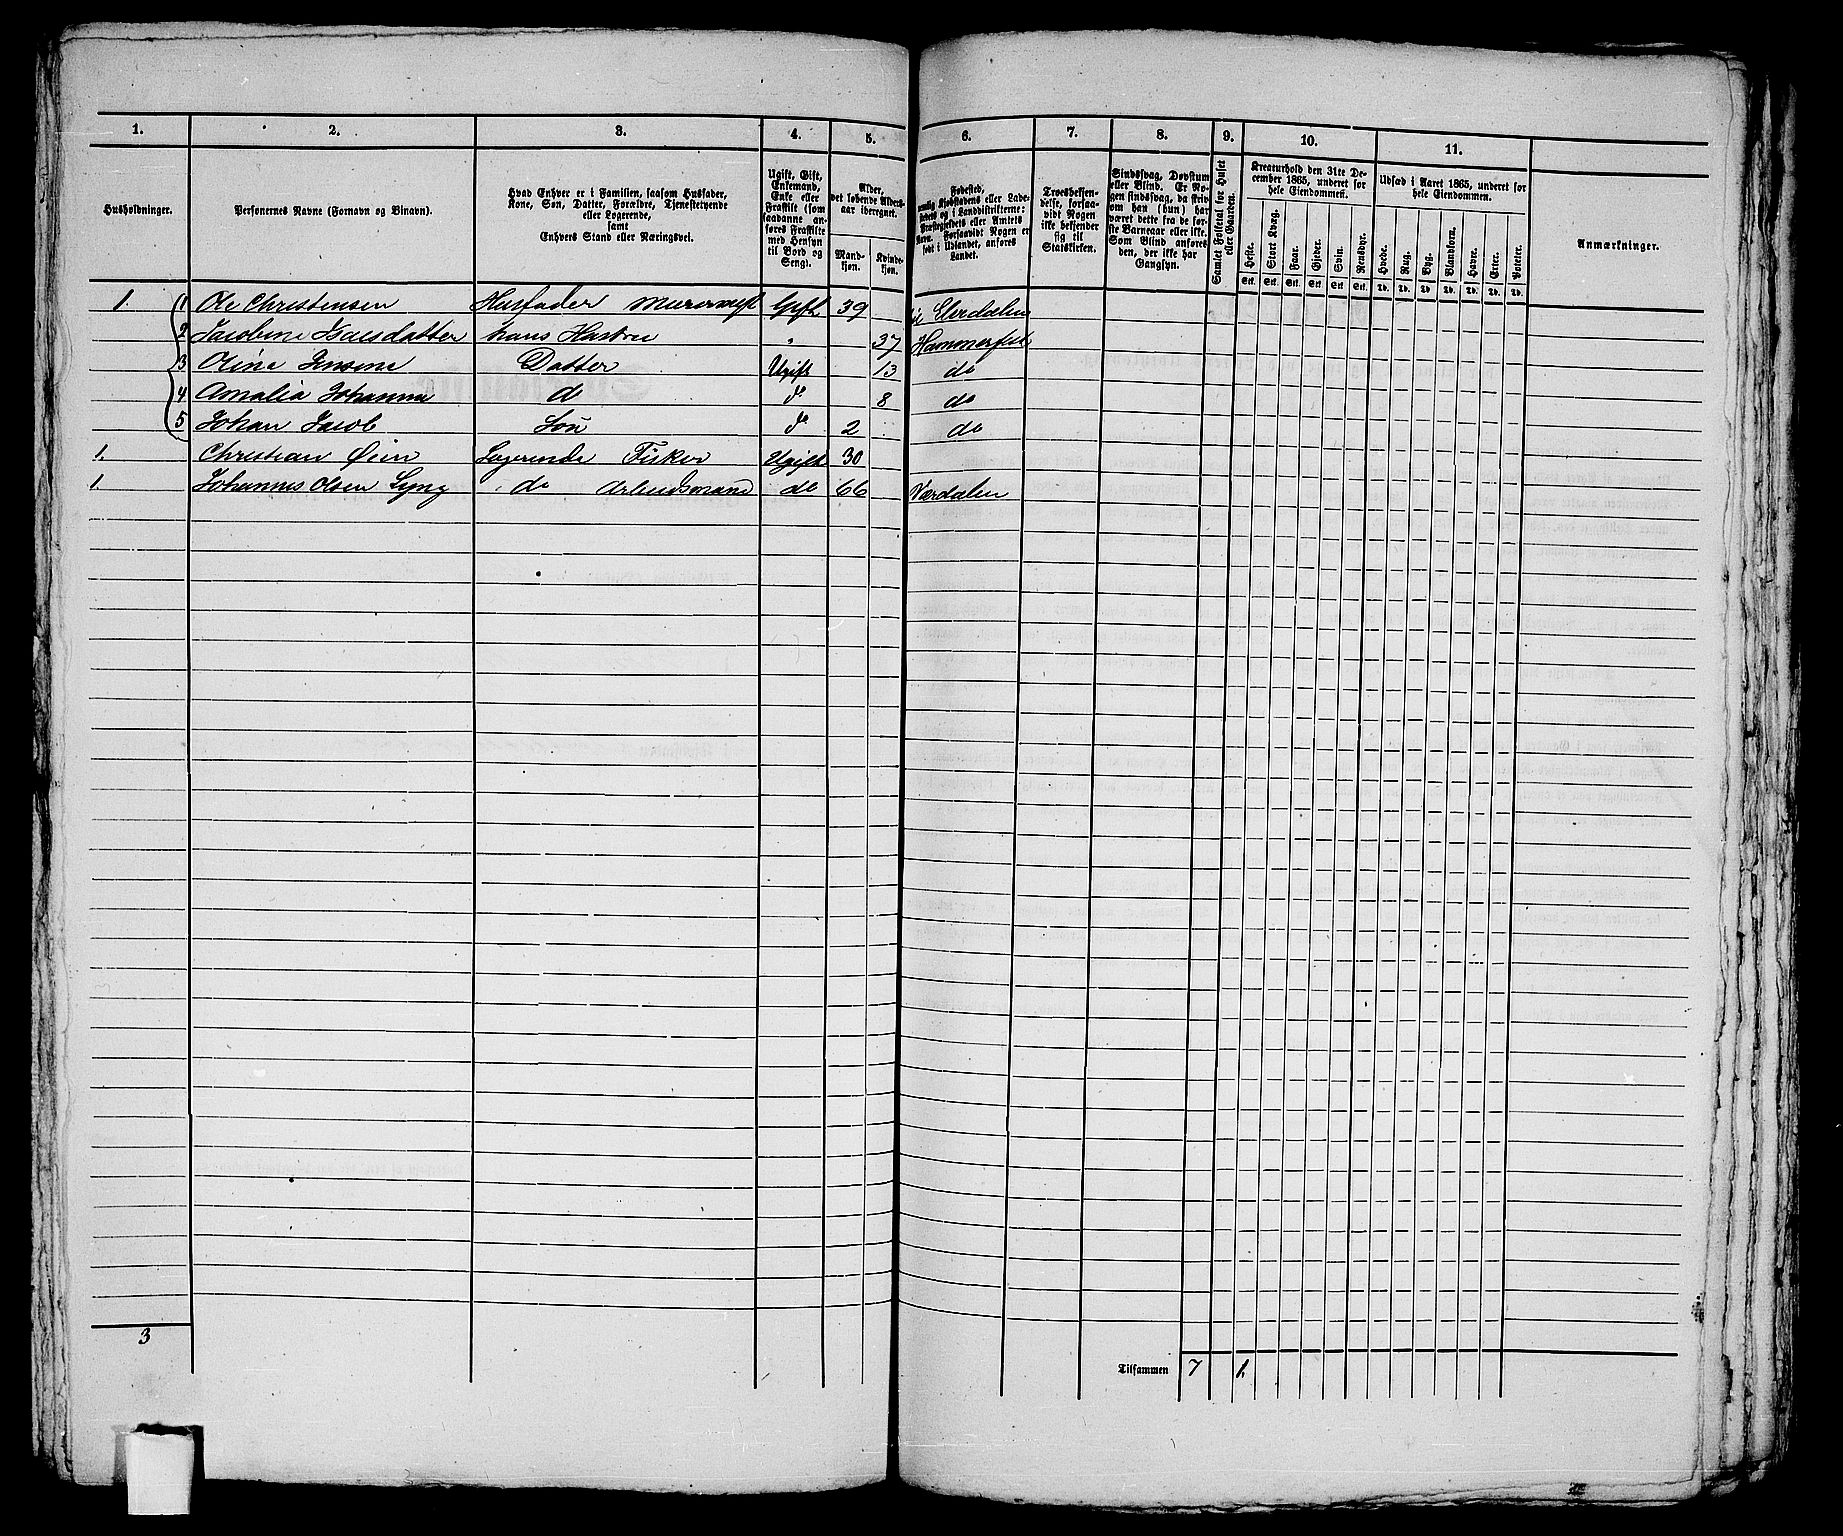 1. 2. 3. 4. 5. 6. 7. 8. 9. 10. 11.
Husholdninger.
Personernes Navne (Fornavn og Binavn).
Hvad Enhver er i Familien, saasom Husfader,
Kone, Søn, Datter, Forældre, Tjenestetyende
eller Logerende,
samt
Enhvers Stand eller Næringsvei.
Ugift, Gift,
Enkemand,
Enke eller
Fraskilt (som
saadanne an-
føres Fraskilte
med Hensyn
til Bord og
Seng).
Alder,
det løbende Alders-
aar iberegnet.
Mand-
kjøn.
Kvinde-
kjøn.
Fødested,
nemlig Kjøbstadens eller Lade-
stedets og i Landdistrikterne:
Præstegjeldets eller Amtets
Navn. Forsaavidt Nogen er
født i Udlandet, anføres
Landet.
Troesbekjen-
delse, forsaa-
vidt Nogen
ikke bekjender
sig til
Statskirken.
Sindssvag, Døvstum
eller Blind. Er No-
gen sindssvag, da skriv
om han (hun) har
været dette fra de før-
ste Barneaar eller ikke.
Som Blind anføres
den, der ikke har
Gangsyn.
Samlet Folketal for Huset
eller Gaarden.
Kreaturhold den 31te De-
cember 1865, underet for
hele Eiendommen.
Heste. Stort Kvæg. Faar. Gjeder. Svin. Rensdyr.
Stk. Stk. Stk. Stk. Stk. Stk.
Udsæd i Aaret 1865, underet for
hele Eiendommen.
Hvede. Rug. Byg. Blandkorn. Havre. Erter. Poteter.
Td. Td. Td. Td. Td. Td. Td.
Anmærkninger.
1. 1 Ole Christensen Husfader Murersvend Gift 39
2 Jacobine Isacsdatter hans Hustru " 37 Hammerfest
3 Oline Jensine Datter Ugift 13 do
4 Amalia Johanna d do 8 do
5 Johan Jacob Søn do 2 do
1. Christian Øien Logerende Fisker Ugift 30
1. Johannes Olsen Lyng do Arbeidsmand do 66 Værdalen
3
Tilsammen 7 1